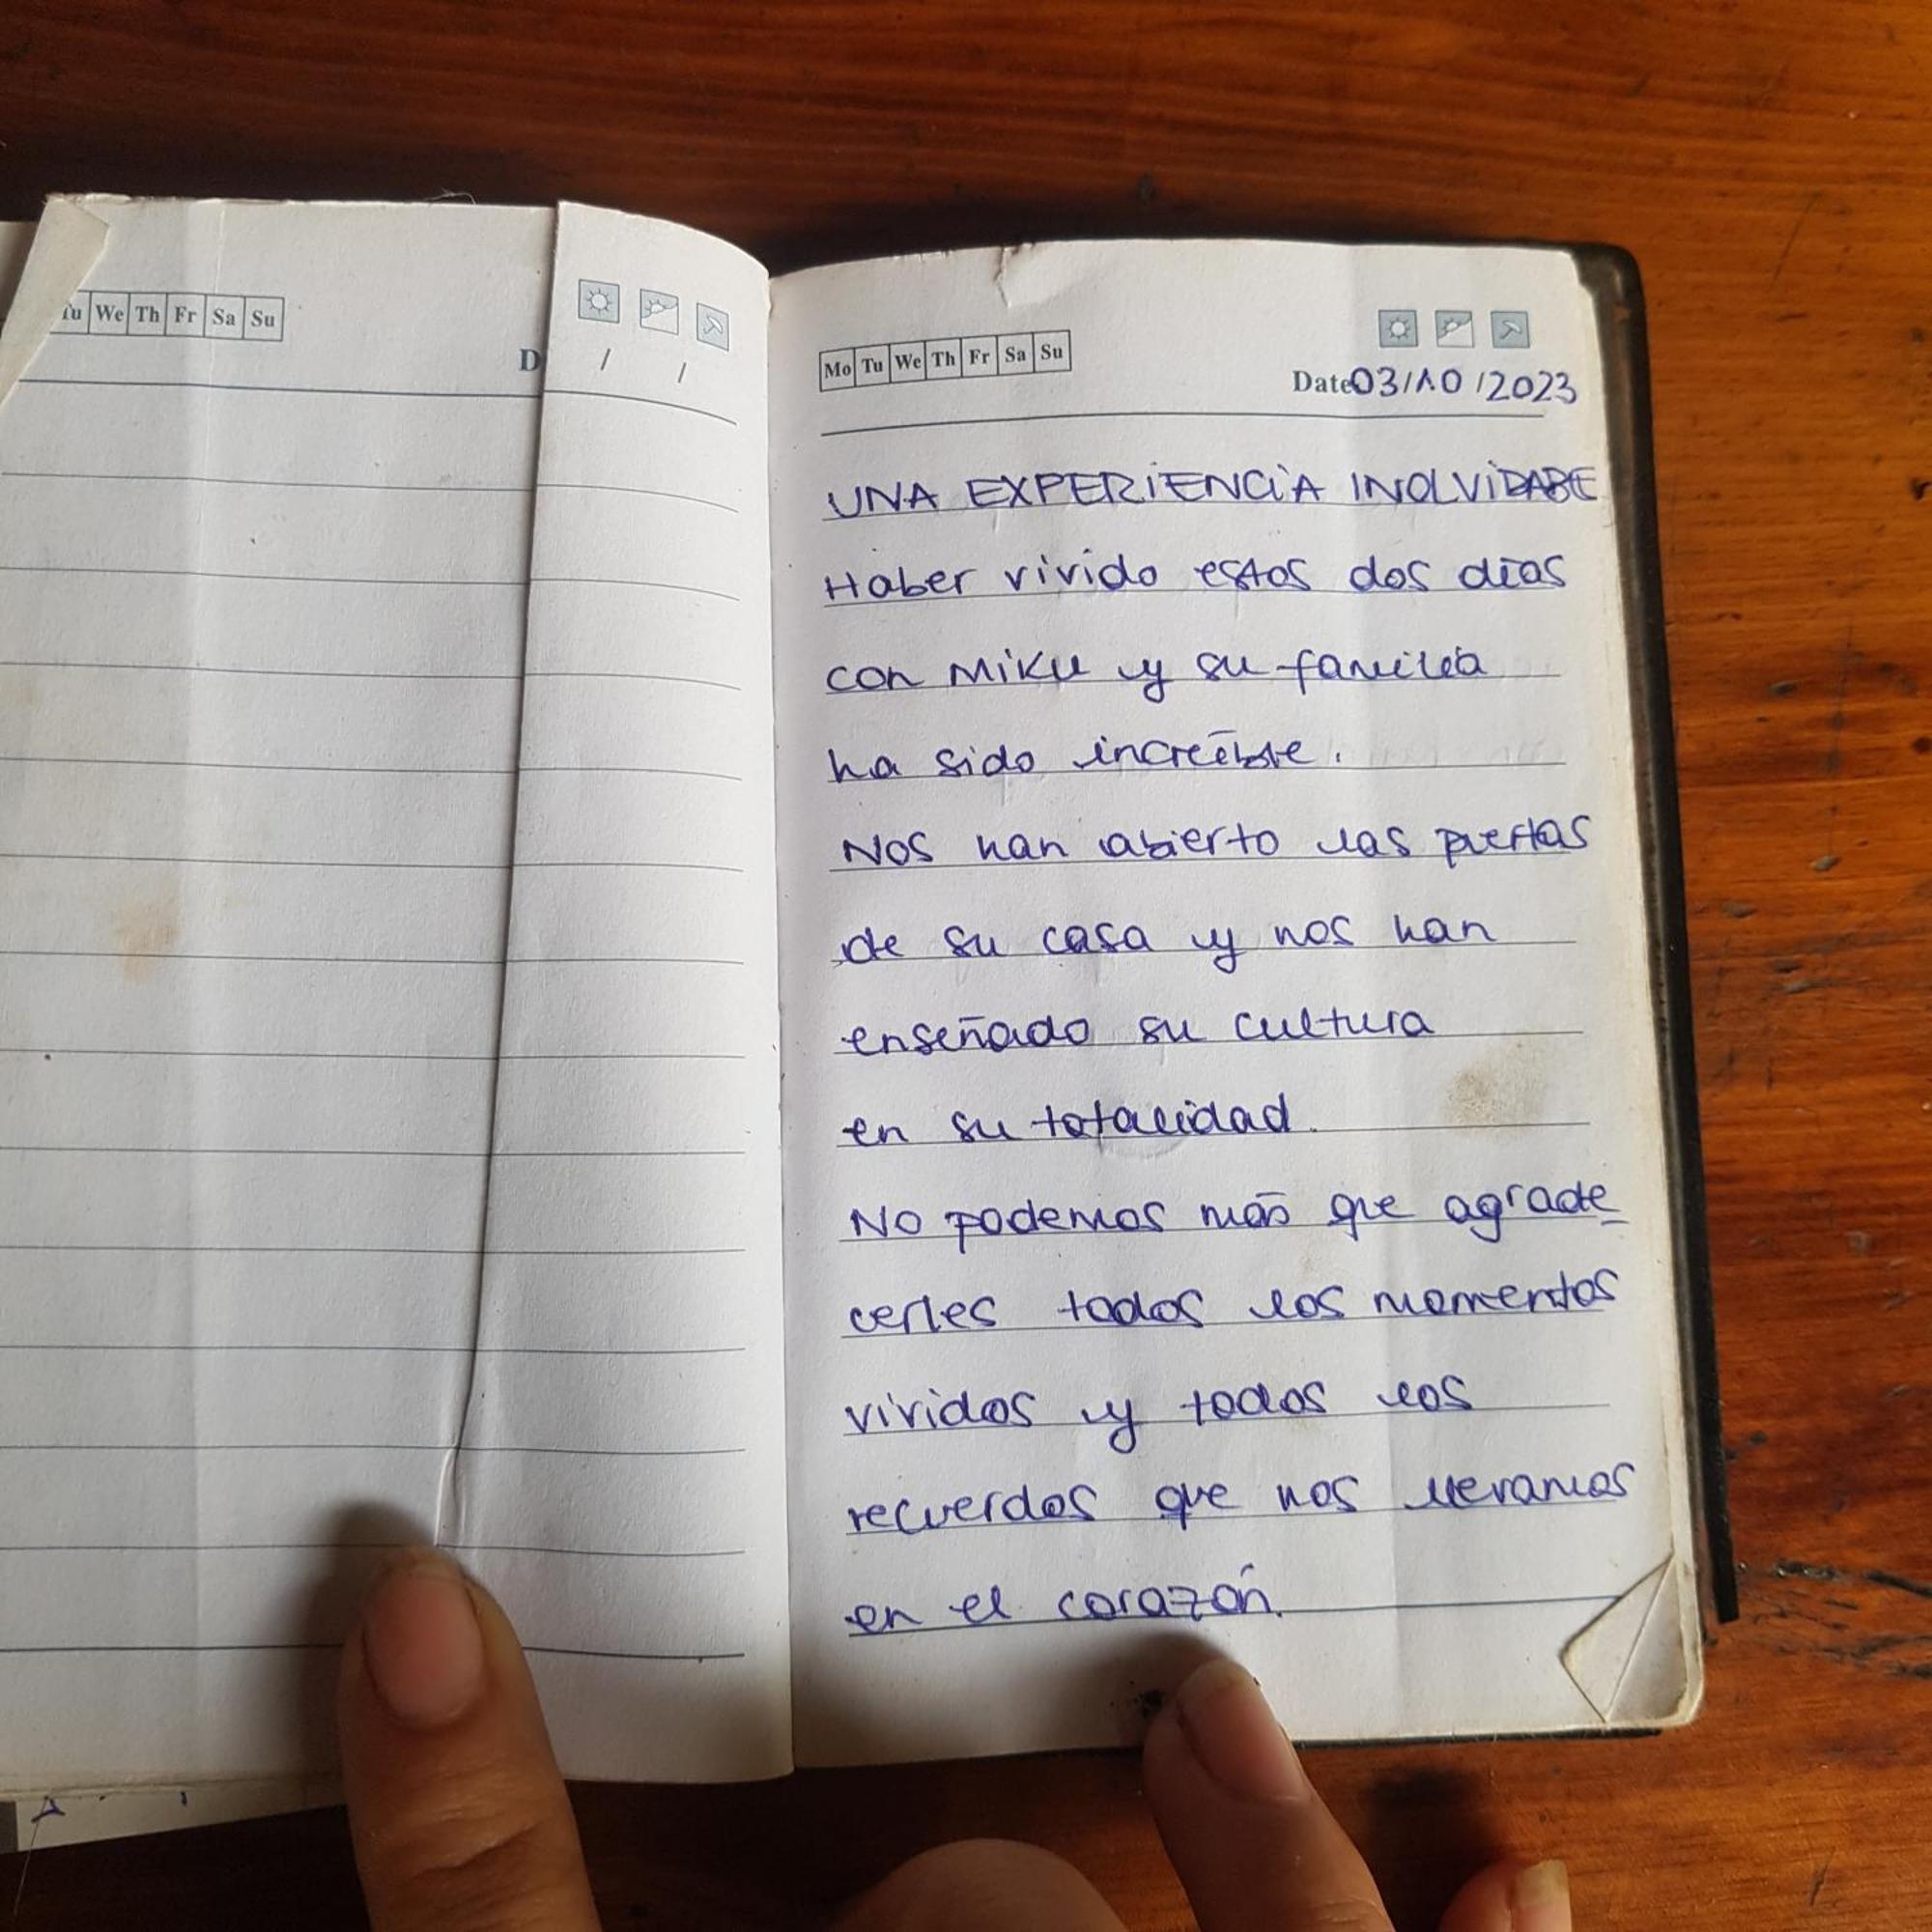 Tu We Th Fr Sa Su
D / /
Mo Tu We Th Fr Sa Su
Date 03/10/2023
UNA EXPERIENCIA INOLVIDABE
Haber vivido estos dos días
con Miku y su familia
ha sido increíble.
Nos han abierto las puertas
de su casa y nos han
enseñado su cultura
en su totalidad.
No podemos más que agrade
cerles todos los momentos
vividos y todos los
recuerdos que nos llevamos
en el corazón.